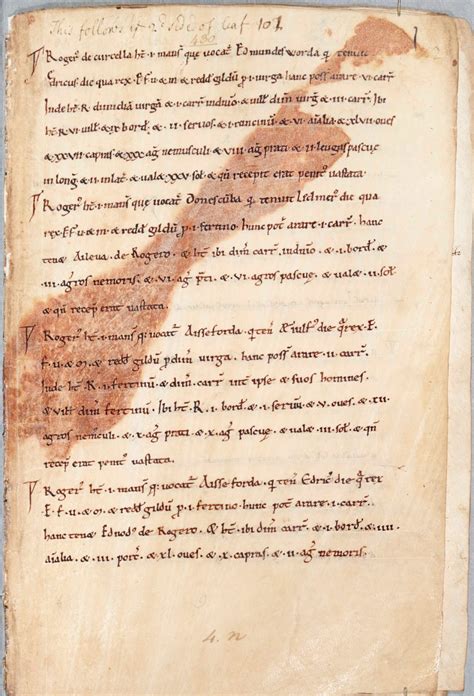 This follows ye 2d side of leaf 101.
1
Rogeꝝ de curcella hт̄ .i. mansī quę uocat̄ Edmundesworda q̄ tenuit
Edricus die qua rex .E. f. u. & m. & redd̄ gildū p̄ .i. uirga hanc poss̄ arare .v. carr̄
Inde hт̄ R. dimidiā uirgā & .i. carr̄ indn̄io & uill̄i dim̄ uirgā & .iii. carr̄. Ibi
hт̄ R. vi. uill̄ & bord̄ & .ii. seruos & .i. roncinū & .vi. animalia & .xlvii. oues
& xxvii. capras & xxx. ag̃ nemusculi & .viii. ag̃ prati & .ii. leugas pascue
in long̃ & .ii. in lat̄ & ual& .xxv. sol̄ & qn̄ recepit erat penit̄ uastata.
Roger̃ hт̄ .i. mans̄ que uocat̄ Donescūba q̄ tenuit Lidmer̄ die qua
rex .E. f. u. & m. & redd̄ gildū p̄ .i. fertino hunc pot̄ arare .i. carr̄. hanc
ten& Aileua de Rogero & hт̄ ibi dim̄ carr̄ & .i. bord̄ &
.iii. agros nemoris & .vi. ag̃ p̄ti & .vi. agros pascuę & ual& .ii. sol̄
& qn̄ recep̄ erat uastata.
Roger̃ hт̄ .i. mans̄ q̄ uocat̄ Aisseforda q̄ ten̄ Æiluer̄t die q̄ rex .E.
f. u. & m. & redd̄ gildū p̄ dim̄ uirga. hanc poss̄ arare .ii. carr̄.
Inde hт̄ R. .i. fertinū & dim̄ carr̄ int̄ ipse & suos homines.
& uill̄i dim̄ fertinū. Ibi hт̄ R. .i. bord̄ & .i. seruū & .v. oues & .xv.
agros nemusculi & .x. ag̃ prati & .x. ag̃ pascuę & ual& .iii. sol̄ & qn̄
recep̄ erat penit̄ uastata.
Roger̃ hт̄ .i. mans̄ q̄ uocat̄ Aisseforda q̄ ten̄ Edric̄ die q̄ rex
.E. f. u. & m. & redd̄ gildū p̄ .i. fertino hunc pot̄ arare .i. carr̄.
hanc ten& Ednod̄ de Rogero & hт̄ ibi dim̄ carr̄ & .i. bord̄ & .iiii.
añalia & .iii. porc̄ & .xl. oues & .x. capras & .ii. ag̃ nemoris.
4. n